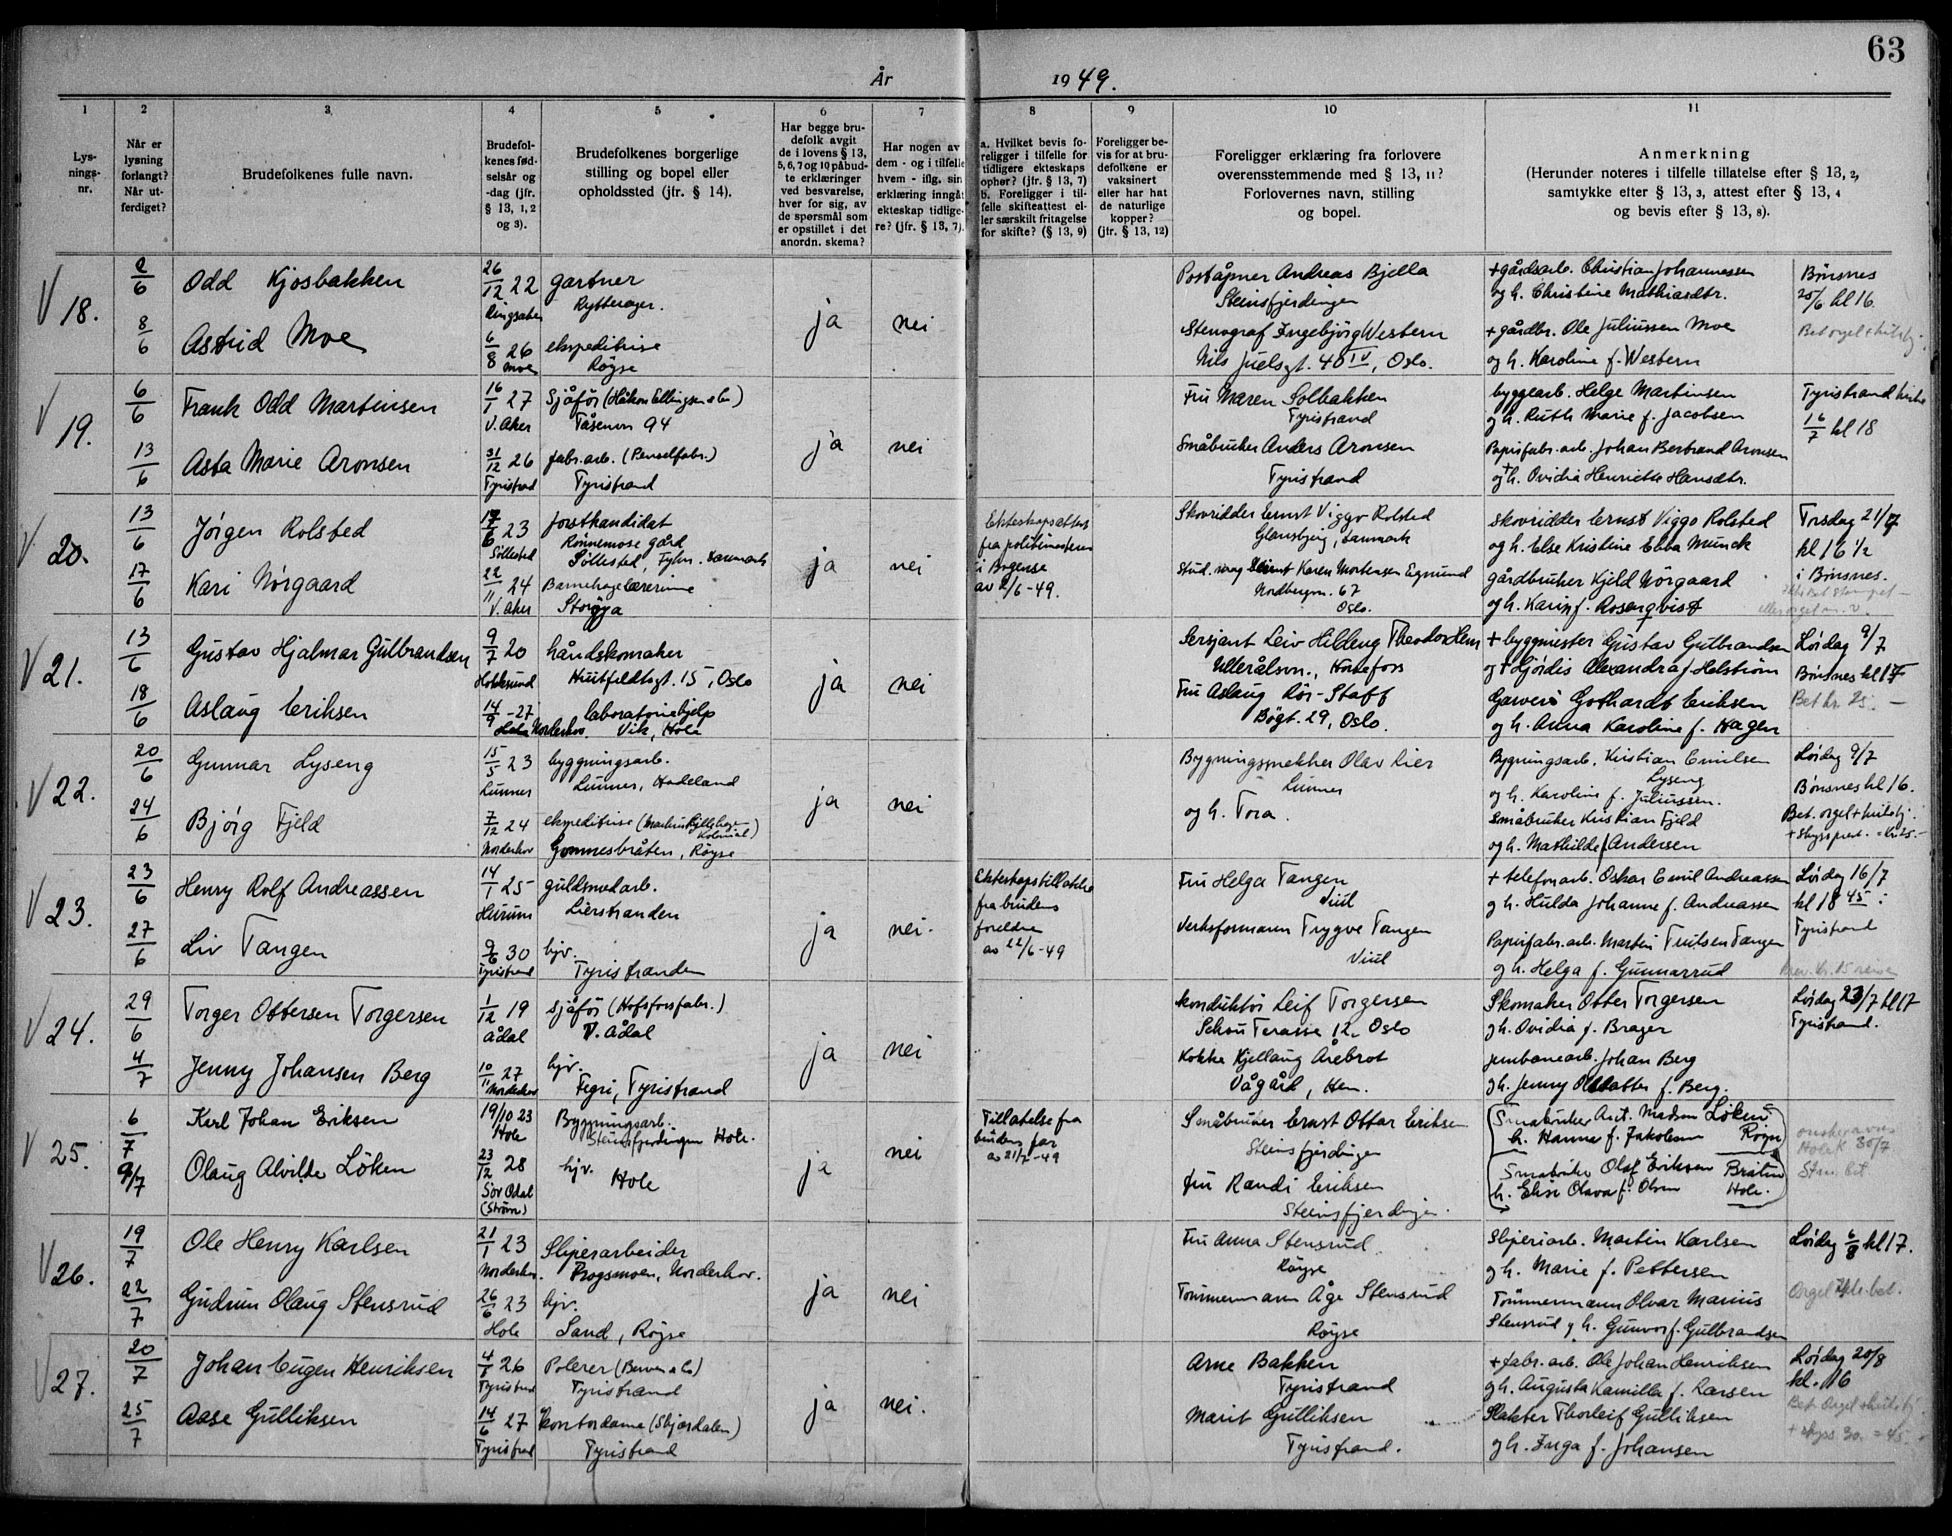 63
År 1949.
1
Lys-
nings-
nr.
2
Når er
lysning
forlangt?
Når ut-
ferdiget?
3
Brudefolkenes fulle navn.
4
Brudefol-
kenes fød-
selsår og
-dag (jfr.
§ 13, 1, 2
og 3).
5
Brudefolkenes borgerlige
stilling og bopel eller
opholdssted (jfr. § 14).
6
Har begge bru-
defolk avgit
de i lovens § 13,
5, 6, 7 og 10 påbud-
te erklæringer
ved besvarelse,
hver for sig, av
de spørsmål som
er opstillet i det
anordn. skema?
7
Har nogen av
dem - og i tilfelle
hvem - iflg. sin
erklæring inngåt
ekteskap tidlige-
re? (jfr. § 13, 7).
8
a. Hvilket bevis fo-
religger i tilfelle for
tidligere ekteskaps
ophør? (jfr. § 13, 7)
b. Foreligger i til-
felle skifteattest el-
ler særskilt fritagelse
for skifte? (§ 13, 9)
9
Foreligger be-
vis for at bru-
defolkene er
vaksinert
eller har hat
de naturlige
kopper?
(jfr. § 13, 12)
10
Foreligger erklæring fra forlovere
overensstemmende med § 13, 11?
Forlovernes navn, stilling
og bopel.
11
Anmerkning
(Herunder noteres i tilfelle tillatelse efter § 13, 2,
samtykke efter § 13, 3, attest efter § 13, 4
og bevis efter § 13, 8).
V 18.
2/6 Odd Kjosbakken 26/12 22 gartner
Rytterager.
8/6 Astrid Moe 6/8 26 Moe ekspeditrise
Røyse
ja nei
Poståpner Andreas Bjella
Steinsfjerdingen
Stenograf Ingebjörg Western
Nils Juelsgt. 40 IV, Oslo.
+ gårdsarb. Christian Johannessen
og h. Christine Mathiasdtr.
+ gårdbr. Ole Juliussen Moe
og h. Karoline f. Western
Bönsnes
25/6 kl 16.
V 19.
6/6 Frank Odd Martinsen 16/1 27 V. Aker Sjåför (Håkon Ellingsen & Co)
Tåsenvn 94
13/6 Asta Marie Aronsen 31/12 26 Tyristrand fabr. arb. (Penselfabr.)
Tyristrand
ja nei
Fru Maren Solbakken
Tyristrand
Småbruker Anders Aronsen
Tyristrand
byggearb. Helge Martinsen
og h. Ruth Marie f. Jacobsen
Papirfabr. arb. Johan Bertrand Aronsen
og + h. Ovidia Henriette Hansdtr.
Tyristrand kirke
16/7 kl 18
V 20.
13/6 Jörgen Rolsted 17/6 23 Söllested forstkandidat
Rönnemose gård
Söllested, Fyn. Danmark
17/6 Kari Nörgaard 22/11 24 V. Aker Barnehagelærerinne
Storöya
ja nei
Ekteskapsattest
fra politimesteren
i Bogense
av 2/6 - 49.
Skovridder Ernst Viggo Rolsted
Glansbjerg, Danmark
Karen Mortensen Egmund
Nordbergvn. 67
Oslo.
skovridder Ernst Viggo Rolsted
og h. Else Kristine Ebba Munck
gårdbruker Kjeld Nörgaard
og h. Karin f. Rosenqvist
Torsdag 21/7
kl 16 1/2
i Bönsnes.
V 21.
13/6 Gustav Hjalmar Gulbrandsen 9/7 20 Hokksund håndskomaker
Huitfeldtsgt. 15, Oslo
18/6 Aslaug Eriksen 14/9 - 27 Norderhov. laboratoriehjelp
Vik, Hole
ja nei
Sersjant Leiv Hilding Theodor Hem
Ullerålsvn., Hönefoss
Fru Aslaug Rör-Staff
Bögt. 29, Oslo.
+ byggmester Gustav Gulbrandsen
og + Hjördis Alexandra f Holström
Garveri Gothardt Eriksen
og h. Anna Karoline f. Hagen
Lördag 9/7
Bönsnes kl 17
Bet. kr. 25. -
V 22.
20/6 Gunnar Lyseng 15/5 23 Lunner byggningsarb.
Lunner, Hadeland
24/6 Björg Fjeld 7/12 24 Norderhov ekspeditrise
Gomnesbråten, Röyse
ja nei
Bygningssnekker Olav Lier
Lunner
og h. Tora.
Bygningsarb. Kristian Emilsen
Lyseng
og h. Karoline f. Juliussen.
Småbruker Kristian Fjeld
og h. Mathilde f Andersen
Lördag 9/7
Bönsnes kl 16.
V 23.
23/6 Henry Rolf Andreassen 14/1 25 Hurum gullsmedarb.
Lierstranden
27/6 Liv Tangen 9/6 30 Tyristrand hjv.
Tyristranden
ja nei.
Ekteskapstillatelse
fra brudens
foreldre
av 22/6 - 49
Fru Helga Tangen
Viul
Verksformann Trygve Tangen
Viul
+ telefonarb. Oskar Emil Andreassen
g h. Hulda Johanne f. Andreassen
Papirfabr. arb. Martin Fritsen Tangen
g h. Helga f. Gunnarrud
Lördag 16/7
kl 18 45
Tyristrand
V 24.
29/6 Torger Ottersen Torgersen 1/12 19 Ådal sjåför (Hofsfossfabr.)
V. Ådal
4/7 Jenny Johansen Berg 10/11 27 Norderhov hjv.
Fegri, Tyristrand
ja nei
Konduktör Leif Torgersen
Schou Terasse 12, Oslo
Kokke Kjellaug Årebrot
Vågård, Hen.
Skomaker Otter Torgersen
g h. Ovidia f. Brager
jernbanearb. Johan Berg
g h. Jenny f. Berg.
Lördag 23/7 kl 17
Tyristrand.
V 25.
6/7 Karl Johan Eriksen 19/10 23 Hole Bygningsarb.
Steinsfjerdingen Hole.
9/7 Olaug Alvilde Löken 23/12 28 Sör Odal (Ström) hjv.
Hole
ja nei
Tillatelse fra
brudens far
av 21/7 - 49
Småbruker Ernst Ottar Eriksen
Steinsfjerdingen
fru Randi Eriksen
Steinsfjerdingen.
Småbruker Ant. Madsen Löken
h. Hanna f. Jakobsen Röyse
Småbruker Olaf Eriksen
h. Elise Olava f. Olsen Hole.
30/7
V 26.
19/7 Ole Henry Karlsen 21/1 23 Norderhov. Sliperarbeider
Progsmoen, Norderhov.
22/7 Gudrun Olaug Stensrud 26/6 23 Hole hjv.
Sand, Röyse
ja nei
Fru Anna Stensrud.
Röyse
Tömmermann Åge Stensrud
Röyse
Sliperiarb. Martin Karlsen
g h. Marie f. Pettersen
Tömmermann Olvar Marius
Stensrud g h. Gunvor f. Gulbrandsen
Lördag 6/8 kl 17.
V 27.
20/7 Johan Eugen Henriksen 4/8 26 Tyristrand Polerer (Berven & Co)
Tyristrand
25/7 Aase Gulliksen 14/6 27 Tyristrand kontordame (Skjærdalen)
Tyristrand
ja nei.
Arne Bakken
Tyristrand
Marit Gulliksen
Tyristrand.
+ fabr. arb. Ole Johan Henriksen
g h. Augusta Kamilla f. Larsen
Slakter Thorleif Gulliksen
g h. Inga f. Johansen
Lördag 20/8
kl. 16